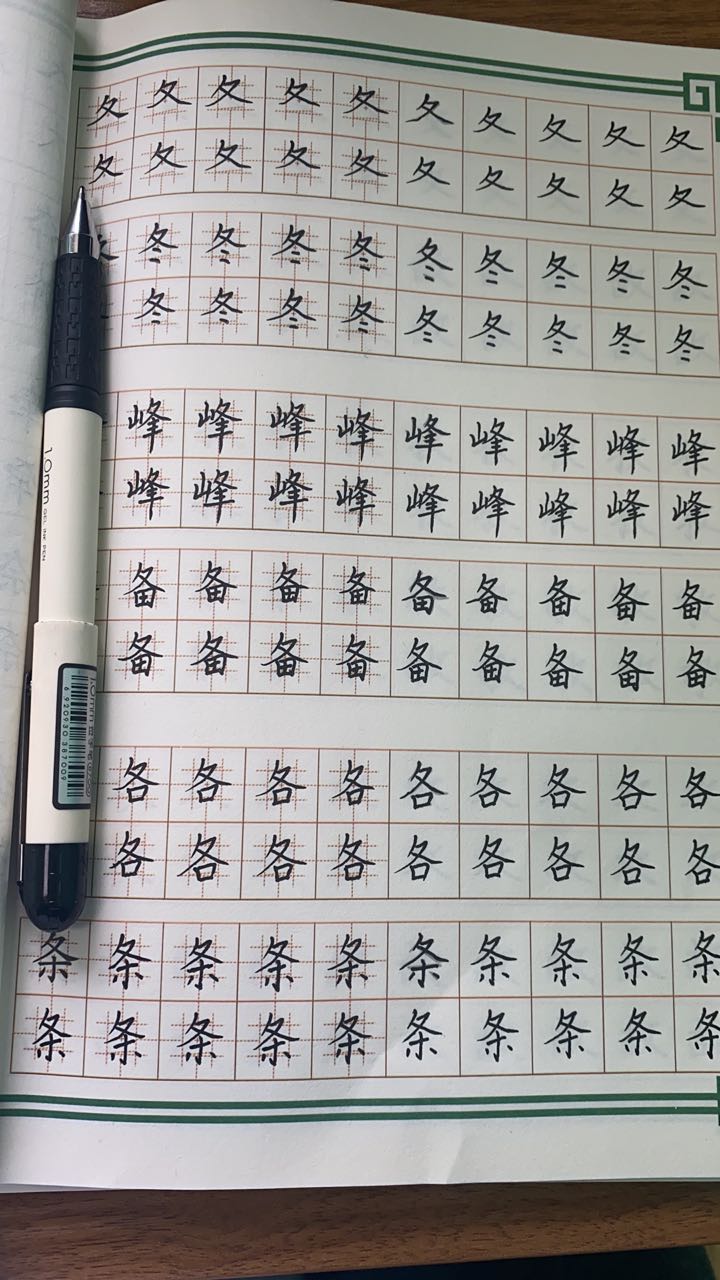 夂夂夂夂夂夂夂夂夂夂
夂夂夂夂夂夂夂夂夂夂
冬冬冬冬冬冬冬冬冬
冬冬冬冬冬冬冬冬冬
峰峰峰峰峰峰峰峰峰
峰峰峰峰峰峰峰峰峰
备备备备备备备备备
备备备备备备备备备
各各各各各各各各各
各各各各各各各各各
条条条条条条条条条条
条条条条条条条条条条
1.0mm GEL INK PEN
1.0mm
6 920930 387009